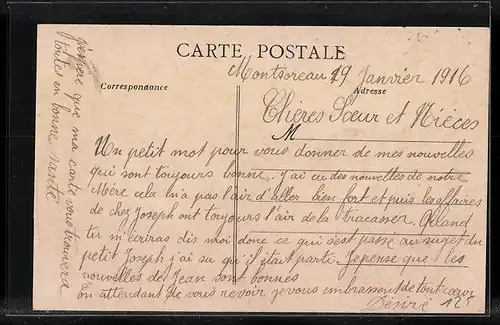 CARTE POSTALE
Montsoreau 19 Janvier 1916
Correspondance
Adresse
Chères Sœur et Nièces
M
Un petit mot pour vous donner de mes nouvelles
qui sont toujours bonne. J'ai eu des nouvelles de notre
Mère cela n'a pas l'air d'aller bien fort et puis les affaires
de chez Joseph ont toujours l'air de la tracasser. Quand
tu m'écriras dis moi donc ce qui s'est passé au suget du
petit Joseph j'ai su qu'il était parti. Je pense que les
nouvelles de Jean sont bonnes
En attendant de vous revoir je vous embrasse de tout cœur
Désiré 125
j'espère que ma carte vous trouvera
toutes en bonne santé